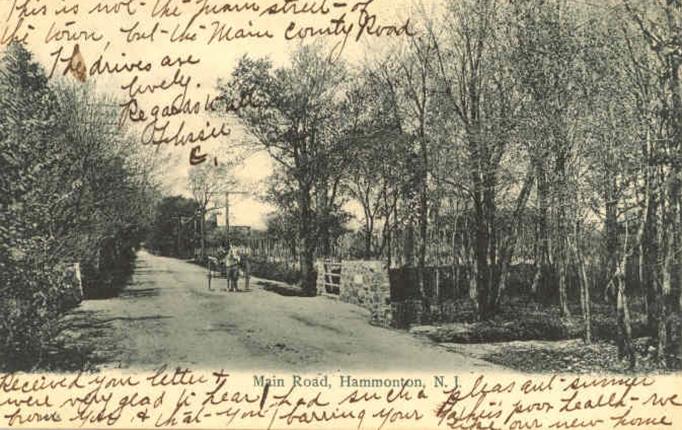 This is not the main street of
the town, but the Main County Road
The drives are
lovely.
Regards to all
E.
Main Road, Hammonton, N. J.
Received your letter &
were very glad to hear had such a pleasant summer
from you & that you barring your poor health we
like our new home